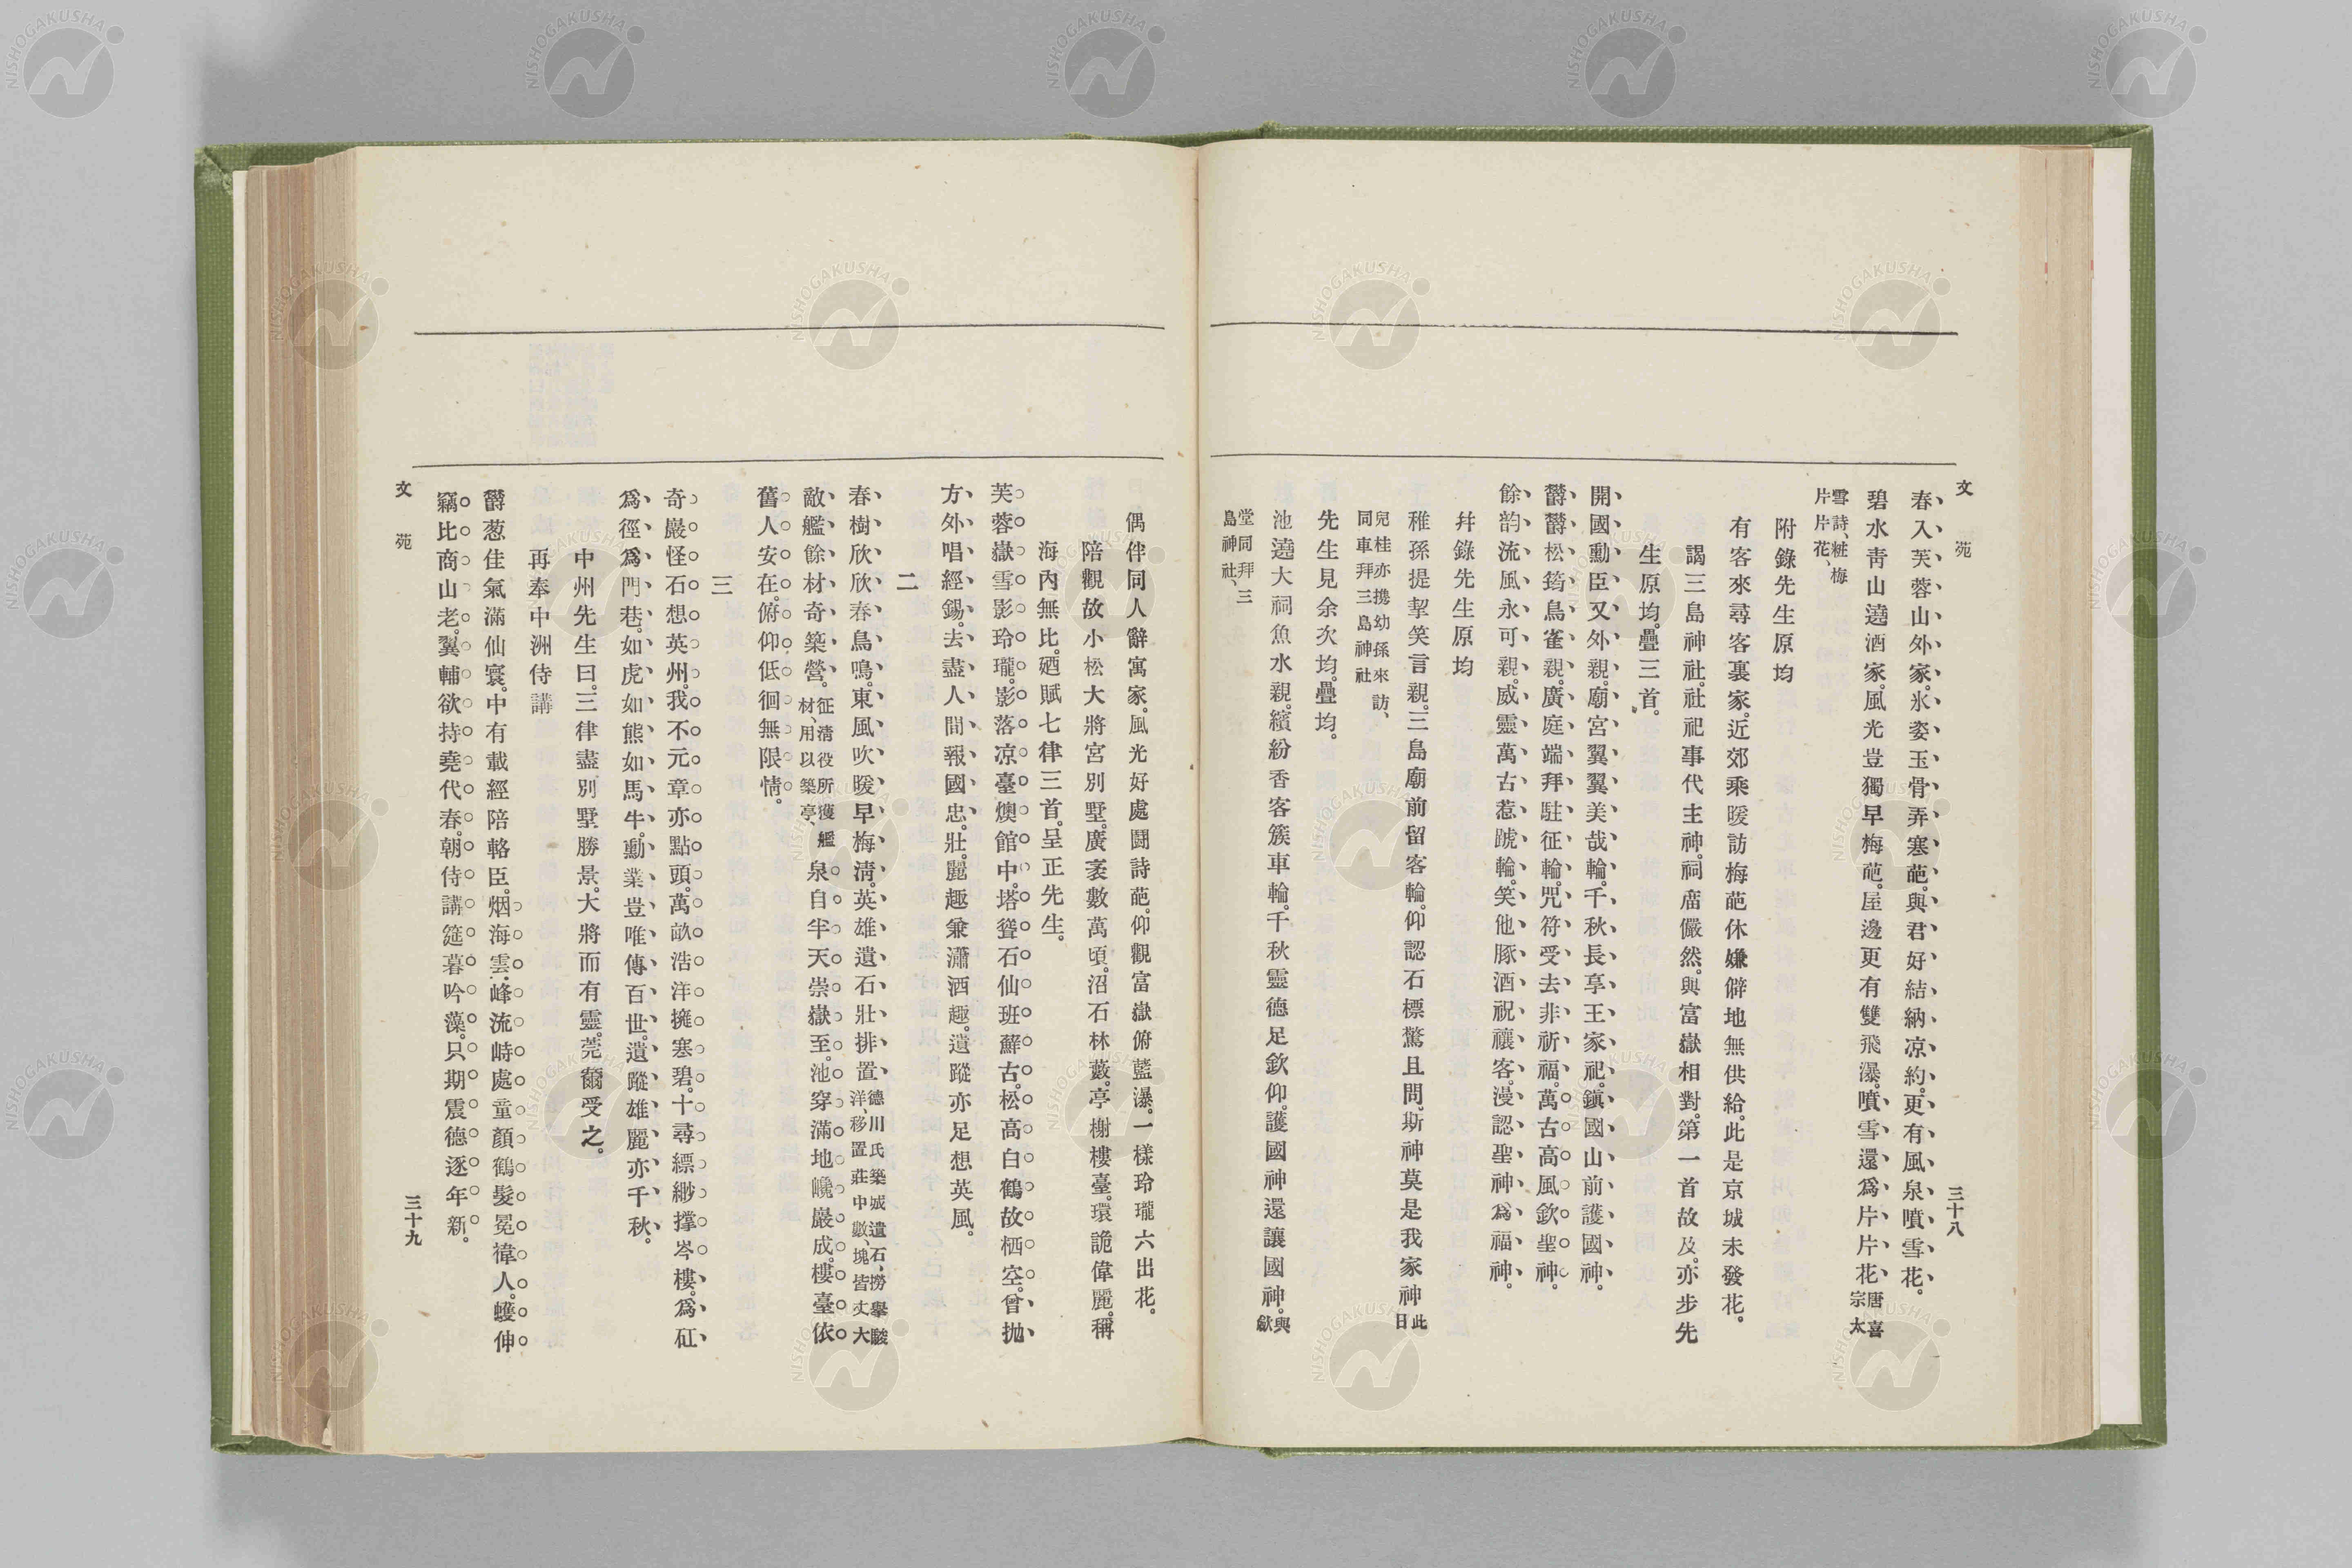 文苑
三十八
春入芙蓉山外家。氷姿玉骨弄寒葩。與君好結納凉約。更有風泉噴雪花。
碧水靑山遶酒家。風光豈獨早梅葩。屋邊更有雙飛瀑。噴雪還爲片片花唐太宗喜
雪詩、粧梅片片花、
附錄先生原均
有客來尋客裏家。近郊乘暖訪梅葩。休嫌僻地無供給。此是京城未發花。
謁三島神社。社祀事代主神。祠庿儼然。與富嶽相對。第一首故及。亦步先
生原均。疊三首。
開國勳臣又外親。廟宮翼翼美哉輪。千秋長享王家祀。鎭國山前護國神。
欝欝松筠鳥雀親。廣庭端拜駐征輪。咒符受去非祈福。萬古高風欽聖神。
餘韵流風永可親。威靈萬古惹蹏輪。笑他豚酒祝禳客。漫認聖神爲福神。
幷錄先生原均
稚孫提挈笑言親。三島廟前留客輪。仰認石標驚且問。斯神莫是我家神此日
兒桂亦携幼孫來訪、同車拜三島神社
先生見余次均。疊均。
池遶大祠魚水親。繽紛香客簇車輪。千秋靈德足欽仰。護國神還讓國神。與猷
堂同拜三島神社、
偶伴同人辭寓家。風光好處鬪詩葩。仰觀富嶽俯藍瀑。一樣玲瓏六出花。
陪觀故小松大將宮別墅。廣袤數萬頃。沼石林藪。亭榭樓臺。環詭偉麗。稱
海內無比。廼賦七律三首。呈正先生。
芙蓉嶽雪影玲瓏。影落凉臺燠館中。塔聳石仙班蘚古。松高白鶴故栖空。曾抛
方外唱經錫。去盡人間報國忠。壯麗趣兼瀟洒趣。遺蹤亦足想英風。
二
春樹欣欣春鳥鳴。東風吹暖早梅淸。英雄遺石壯排置德川氏築城遺石、撈擧駿洋、移置莊中數塊、皆丈大
敵艦餘材奇築營。征淸役所獲艦材、用以築亭、泉自半天崇嶽至。池穿滿地巉巖成。樓臺依
舊人安在。俯仰低徊無限情。
三
奇巖怪石想英州。我不元章亦點頭。萬畝浩洋擁寒碧。十尋縹緲撑岑樓。爲矼
爲徑爲門巷。如虎如熊如馬牛。勳業豈唯傳百世。遺蹤雄麗亦千秋。
中州先生曰。三律盡別墅勝景。大將而有靈。莞爾受之。
再奉中洲侍講
欝葱佳氣滿仙寰。中有載經陪輅臣。烟海雲峰流峙處。童顏鶴髮冕褘人。蠖伸
竊比商山老。翼輔欲持堯代春。朝侍講筵暮吟藻。只期震德逐年新。
文苑
三十九